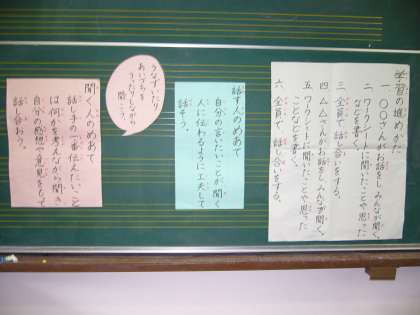 学習の進めかた
一 〇〇さんがお話をし みんなが聞く。
二 ワークシートに聞いたことや思った
ことなどを書く。
三 全員で話し合いをする。
四 △△さんがお話をし みんなが聞く。
五 ワークシートに聞いたことや思った
ことなどを書く。
六 全員で話し合いをする。
話す人のめあて
自分の言いたいことが聞く
人に伝わるように工夫して
話そう。
うなずいたり
あいづちを
うったりしながら
聞こう。
聞く人のめあて
話し手の一番伝えたいこと
は何かを考えながら聞き
自分の感想や意見をもって
話し合おう。